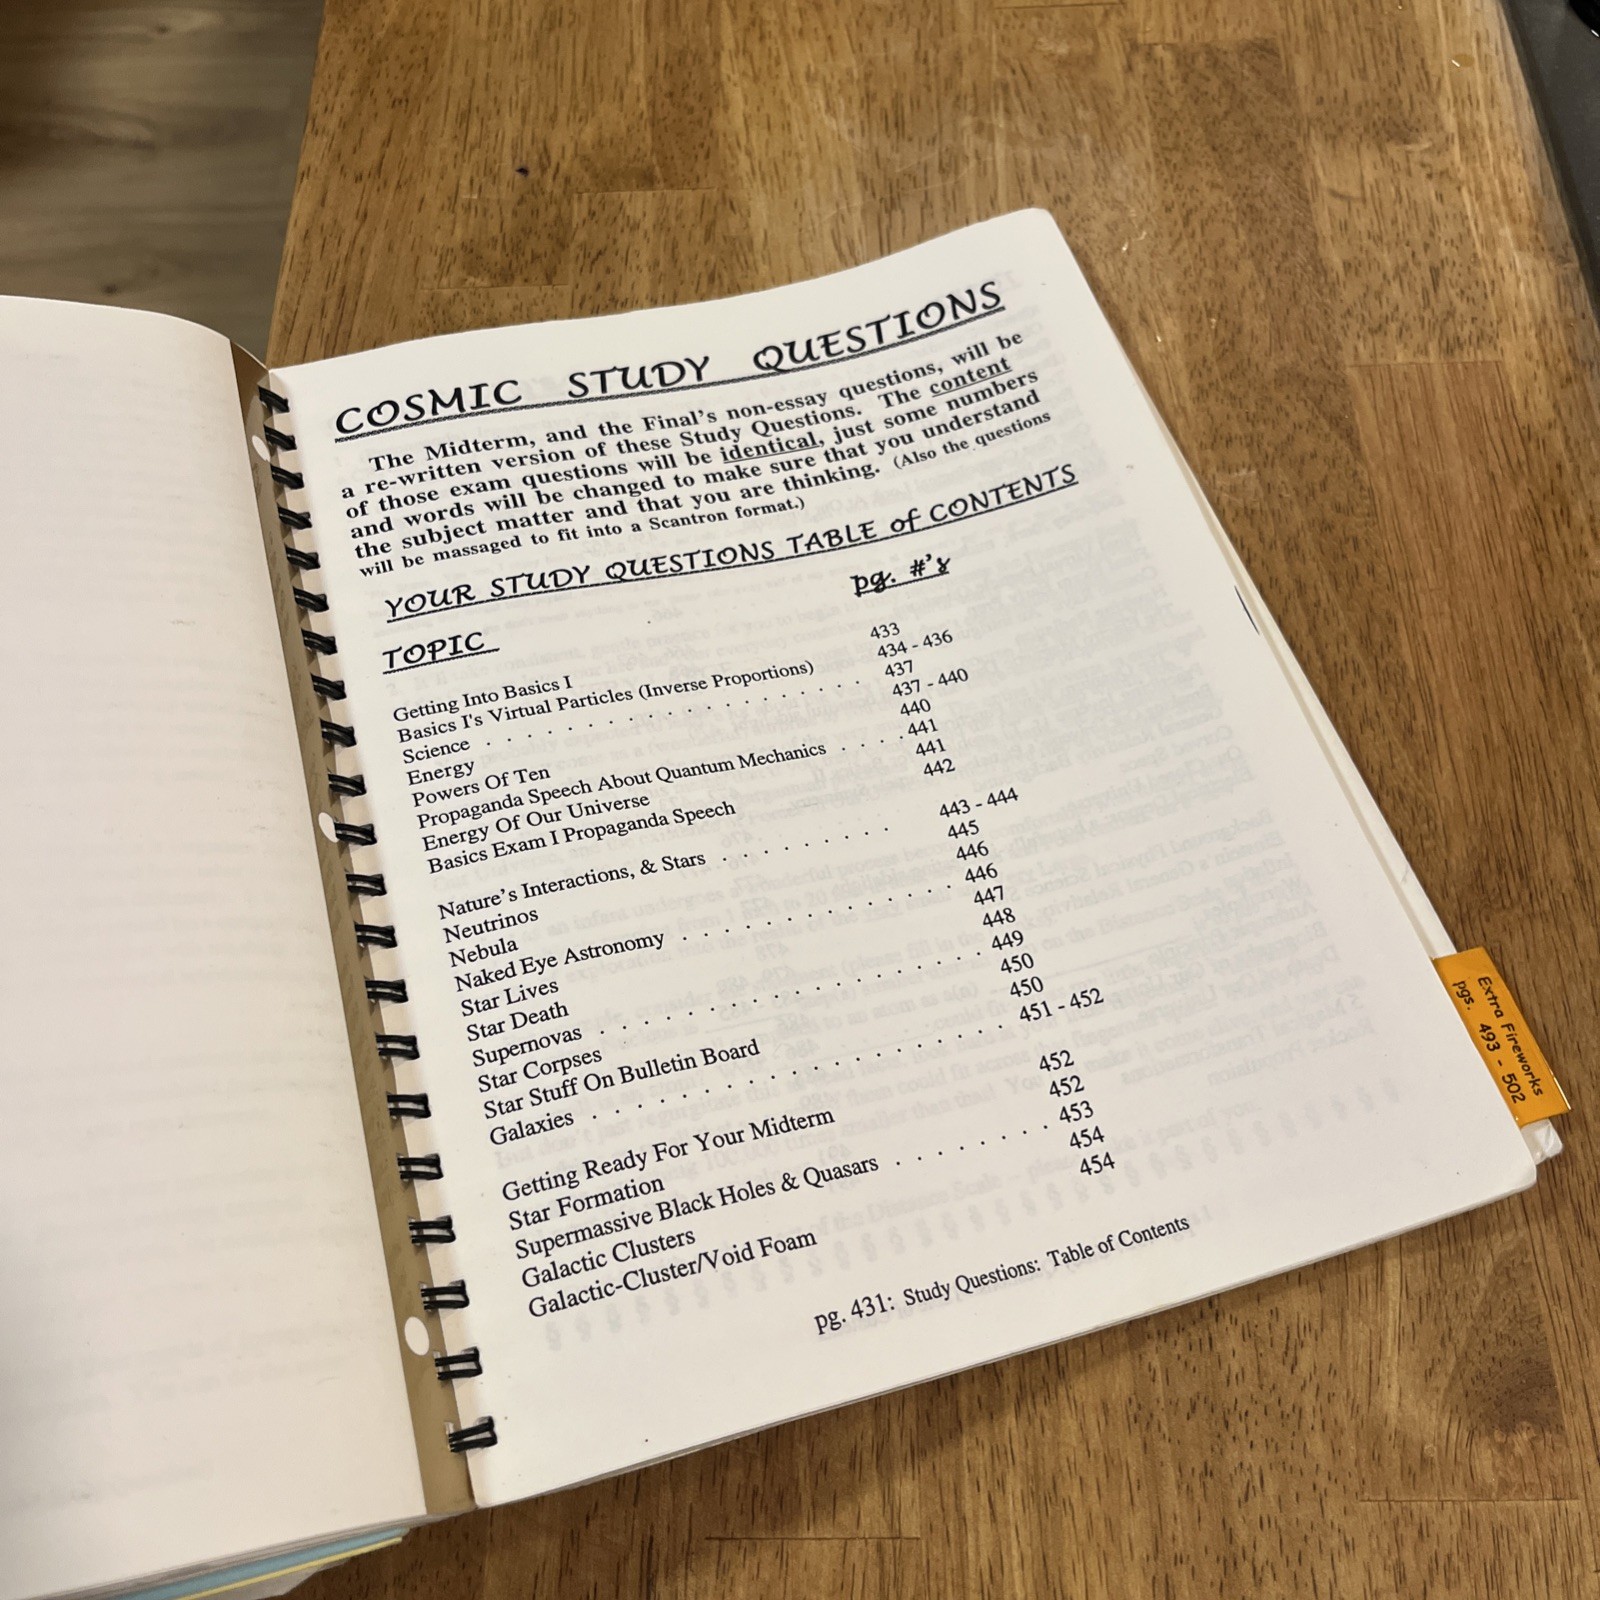 COSMIC STUDY QUESTIONS
The Midterm, and the Final's non-essay questions, will be
a re-written version of these Study Questions. The content
of those exam questions will be identical, just some numbers
and words will be changed to make sure that you understand
the subject matter and that you are thinking. (Also the questions
will be massaged to fit into a Scantron format.)
YOUR STUDY QUESTIONS TABLE of CONTENTS
TOPIC pg. #'s
Getting Into Basics I 433
Basics I's Virtual Particles (Inverse Proportions) 434 - 436
Science . . . . . . . . . . . . . . . . . 437
Energy 437 - 440
Powers Of Ten 440
Propaganda Speech About Quantum Mechanics . . . . 441
Energy Of Our Universe 441
Basics Exam I Propaganda Speech 442
Nature's Interactions, & Stars . . . . . . . . . 443 - 444
Neutrinos 445
Nebula 446
Naked Eye Astronomy . . . . . . . . . . . . . 446
Star Lives 447
Star Death 448
Supernovas . . . . . . . . . . . . . . . . . . 449
Star Corpses 450
Star Stuff On Bulletin Board 450
Galaxies . . . . . . . . . . . . . . . . . . . 451 - 452
Getting Ready For Your Midterm 452
Star Formation 452
Supermassive Black Holes & Quasars . . . . . . . . 453
Galactic Clusters 454
Galactic-Cluster/Void Foam 454
pg. 431: Study Questions: Table of Contents
Extra Fireworks
pgs. 493 - 502